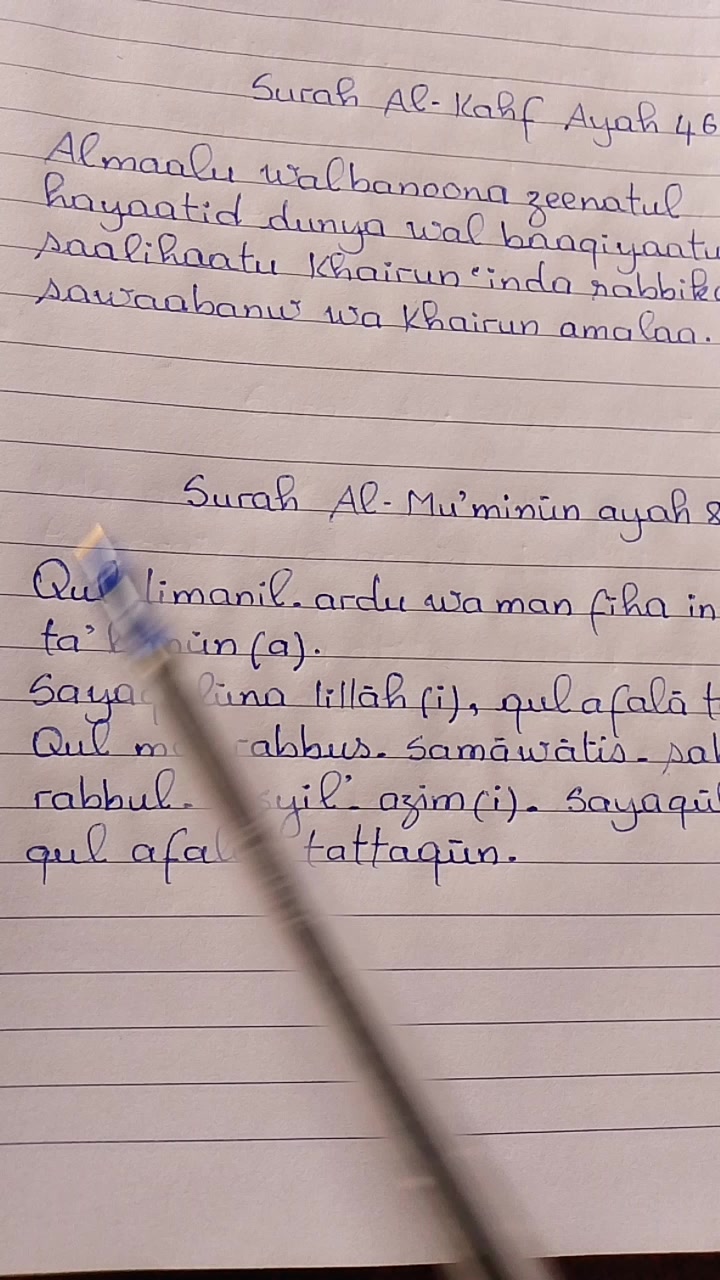 Surah Al-Kahf Ayah 46
Almaalu walbanoona zeenatul
hayaatid dunya wal baaqiyaatu
saalihaatu khairun 'inda
sawaabanw wa khairun amalaa.
Surah Al-Mu'minūn ayah
Qul limanil-ardu wa man fiha in
(a).
lillāh(i), qul afalā
Qul samāwātis-
rabbul- azim(i).
qul tattaqūn.